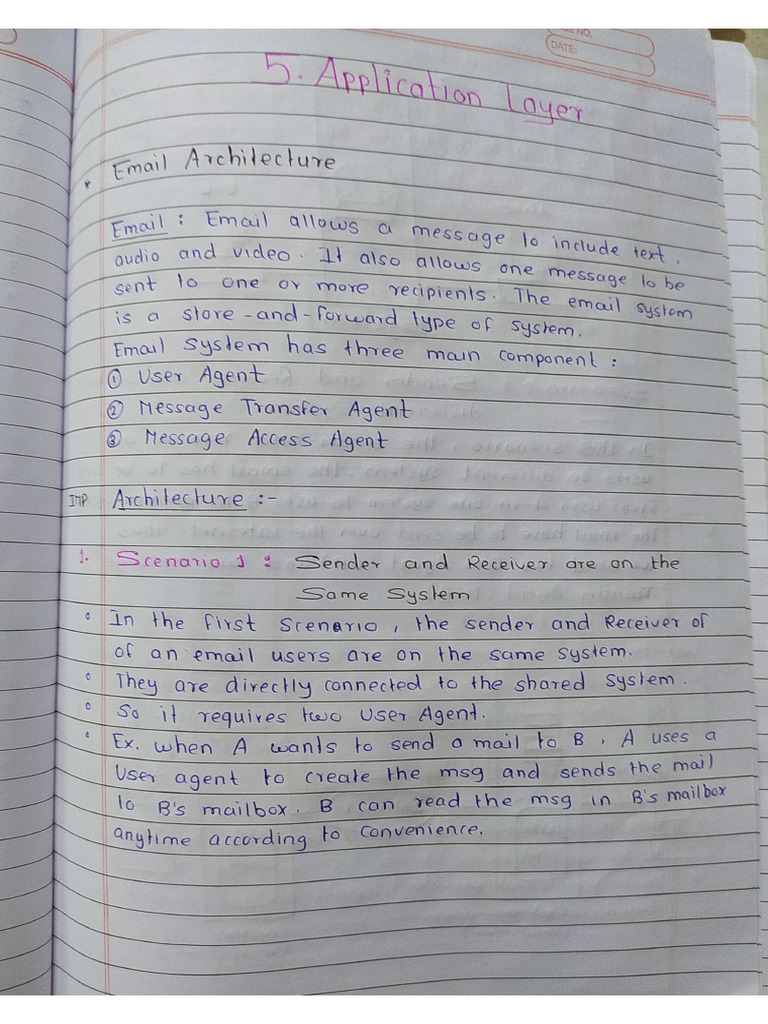 GE NO.
DATE:
5. Application Layer
* Email Architecture
Email : Email allows a message to include text,
audio and video. It also allows one message to be
sent to one or more recipients. The email system
is a store-and-forward type of system.
Email system has three main component :
① User Agent
② Message Transfer Agent
③ Message Access Agent
IMP Architecture :-
1. Scenario 1 : Sender and Receiver are on the
Same System
o In the first scenario, the sender and Receiver of
of an email users are on the same system.
o They are directly connected to the shared system.
o So it requires two User Agent.
• Ex. when A wants to send a mail to B, A uses a
User agent to create the msg and sends the mail
to B's mailbox. B can read the msg in B's mailbox
anytime according to convenience.